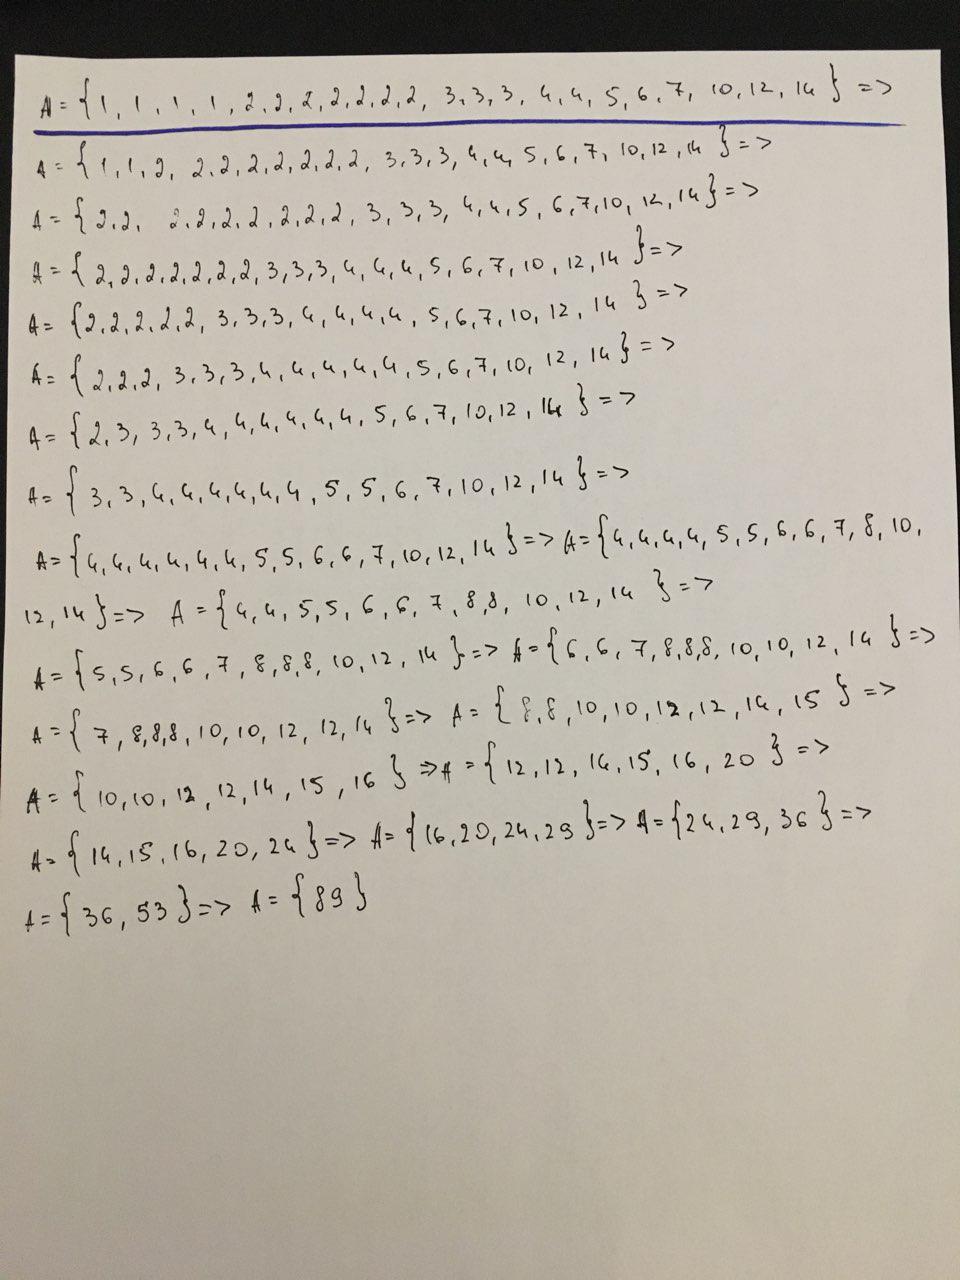 A = {1, 1, 1, 1, 2, 2, 2, 2, 2, 2, 2, 3, 3, 3, 4, 4, 5, 6, 7, 10, 12, 14} =>
A = {1, 1, 2, 2, 2, 2, 2, 2, 2, 2, 3, 3, 3, 4, 4, 5, 6, 7, 10, 12, 14} =>
A = {2, 2, 2, 2, 2, 2, 2, 2, 2, 3, 3, 3, 4, 4, 5, 6, 7, 10, 12, 14} =>
A = {2, 2, 2, 2, 2, 2, 2, 3, 3, 3, 4, 4, 4, 5, 6, 7, 10, 12, 14} =>
A = {2, 2, 2, 2, 2, 3, 3, 3, 4, 4, 4, 4, 5, 6, 7, 10, 12, 14} =>
A = {2, 2, 2, 3, 3, 3, 4, 4, 4, 4, 4, 5, 6, 7, 10, 12, 14} =>
A = {2, 3, 3, 3, 4, 4, 4, 4, 4, 4, 5, 6, 7, 10, 12, 14} =>
A = {3, 3, 4, 4, 4, 4, 4, 4, 5, 5, 6, 7, 10, 12, 14} =>
A = {4, 4, 4, 4, 4, 4, 5, 5, 6, 6, 7, 10, 12, 14} => A = {4, 4, 4, 4, 5, 5, 6, 6, 7, 8, 10,
12, 14} => A = {4, 4, 5, 5, 6, 6, 7, 8, 8, 10, 12, 14} =>
A = {5, 5, 6, 6, 7, 8, 8, 8, 10, 12, 14} => A = {6, 6, 7, 8, 8, 8, 10, 10, 12, 14} =>
A = {7, 8, 8, 8, 10, 10, 12, 12, 14} => A = {8, 8, 10, 10, 12, 12, 14, 15} =>
A = {10, 10, 12, 12, 14, 15, 16} => A = {12, 12, 14, 15, 16, 20} =>
A = {14, 15, 16, 20, 24} => A = {16, 20, 24, 29} => A = {24, 29, 36} =>
A = {36, 53} => A = {89}